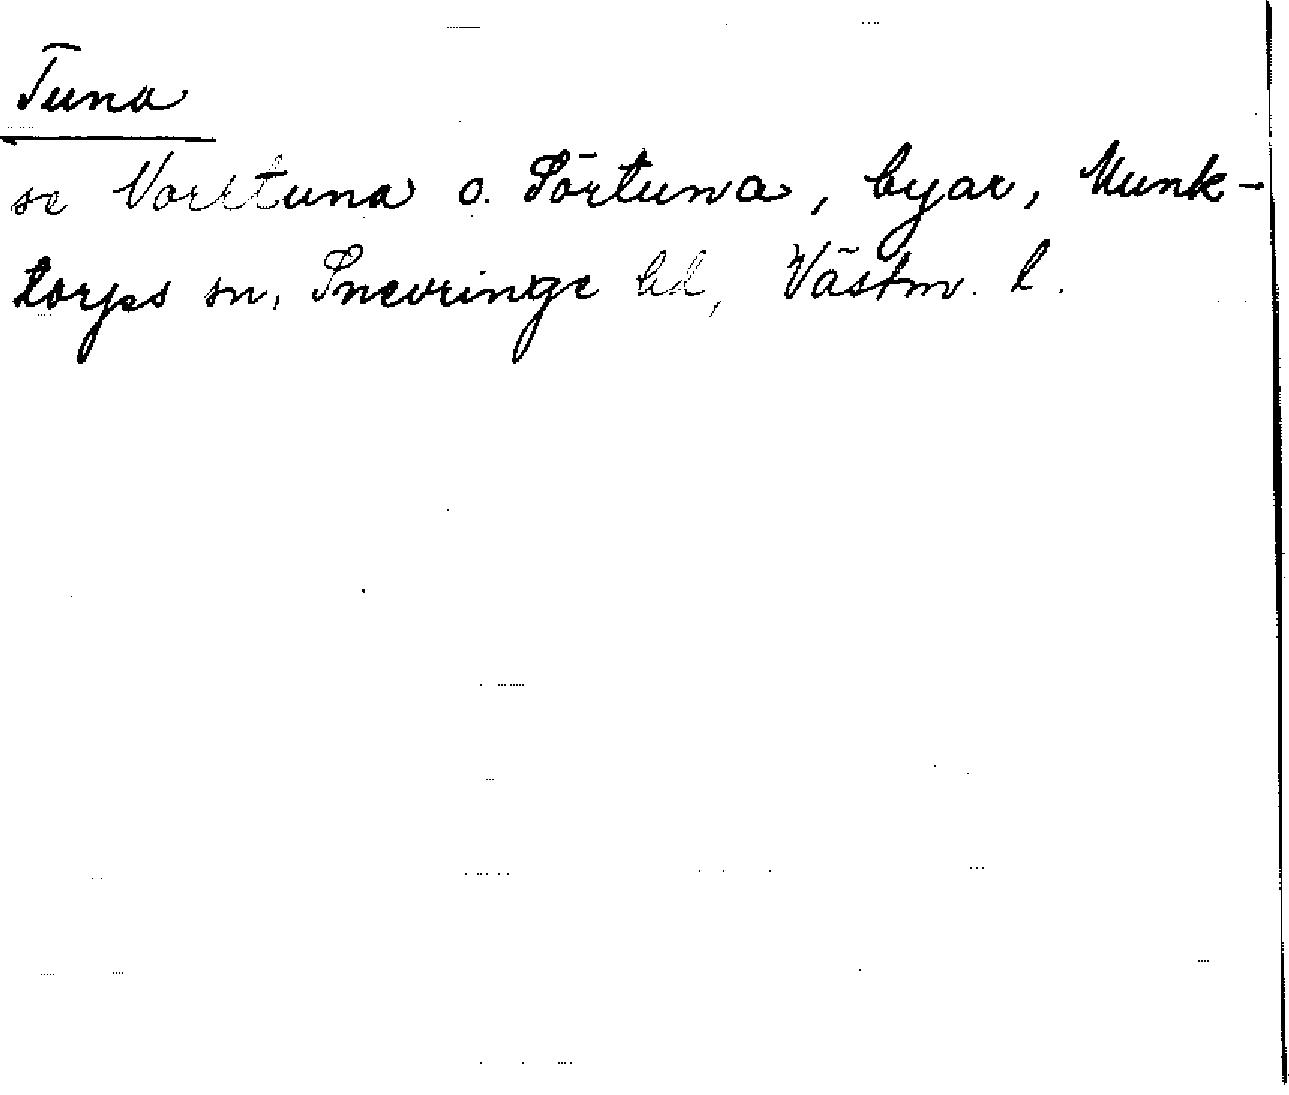 Tuna
se Norrtuna o. Sörtuna, byar, Munk-
torps sn, Snevringe hd, Västm. l.